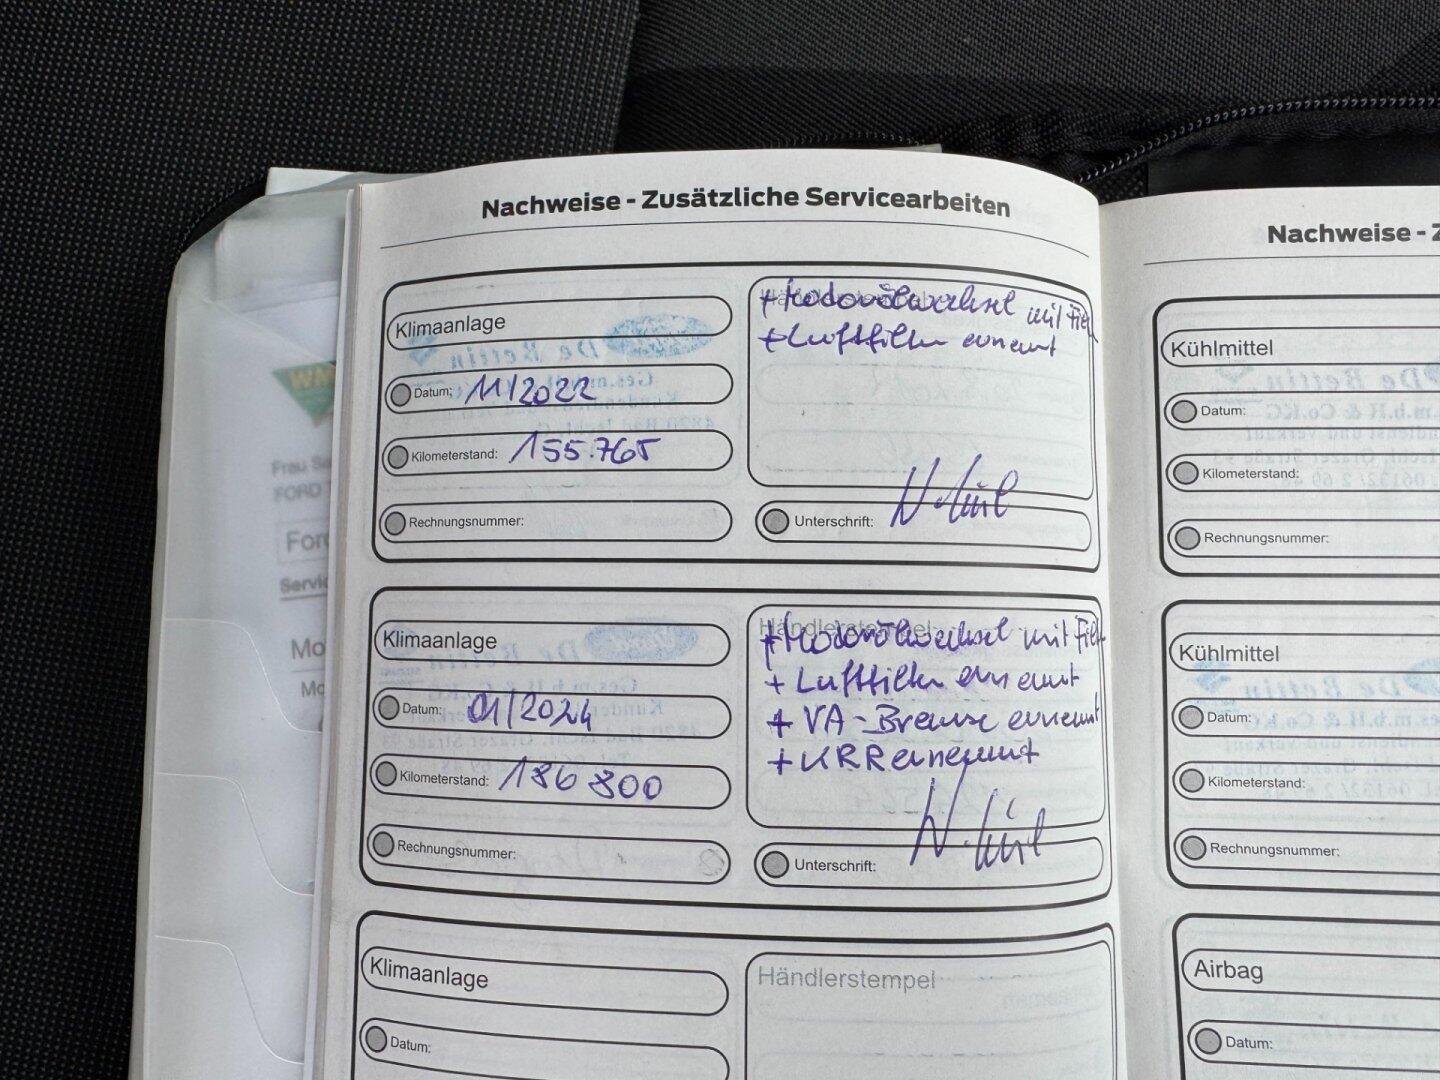 Nachweise - Zusätzliche Servicearbeiten
Klimaanlage
Datum: 11/2022
Kilometerstand: 155.765
Rechnungsnummer:
+ Motorölwechsel mit Filt
+ Luftfilter erneuert
Unterschrift:
Klimaanlage
Datum: 01/2024
Kilometerstand: 186 800
Rechnungsnummer:
Händlerstempel
+ Motorölwechsel mit Filt
+ Luftfilter erneuert
+ VA - Bremse erneuert
+ KRR erneuert
Unterschrift:
Klimaanlage
Datum:
Händlerstempel
Nachweise - Z
Kühlmittel
Datum:
Kilometerstand:
Rechnungsnummer:
Kühlmittel
Datum:
Kilometerstand:
Rechnungsnummer:
Airbag
Datum:
Frau
FORD
Ford
Servic
Mo